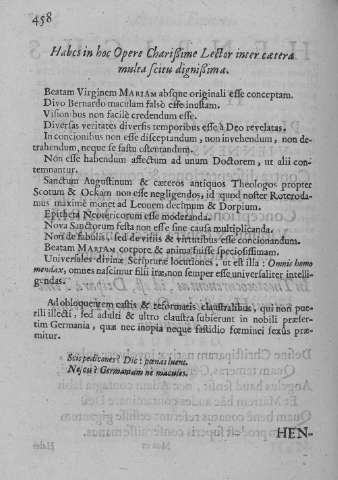 458
Habes in hoc Opere Charißime Lector inter cætera
multa scitu dignißima.
Beatam Virginem MARIAM absque originali esse conceptam.
Divo Bernardo maculam falsò esse inustam.
Visionibus non facilè credendum esse.
Diversas veritates diversis temporibus esse à Deo revelatas.
In concionibus non esse disceptandum, non invehendum, non de-
trahendum, neque se fastu ostentandum.
Non esse habendum affectum ad unum Doctorem, ut alii con-
temnantur.
Sanctum Augustinum & cæteros antiquos Theologos propter
Scotum & Ockam non esse negligendos, id quod noster Roteroda-
mus maximè monet ad Leonem decimum & Dorpium.
Epitheta Neotericorum esse moderanda.
Nova Sanctorum festa non esse sine causa multiplicanda.
Non de fabulis, sed de vitiis & virtutibus esse concionandum.
Beatam MARIAM corpore & anima fuisse speciosissimam.
Universales divinæ Scripturæ locutiones, ut est illa: Omnis homo
mendax, omnes nascimur filii iræ, non semper esse universaliter intelli-
gendas.
Ad obloquentem castis & reformatis claustralibus, qui non pue-
rili illecti, sed adulti & ultro claustra subierunt in nobili præser-
tim Germania, quæ nec inopia neque fastidio fœminei sexus præ-
mitur.
Scis pædicones? Dic: pœnas luent.
Ne sis? Germaniam ne macules.
HEN-